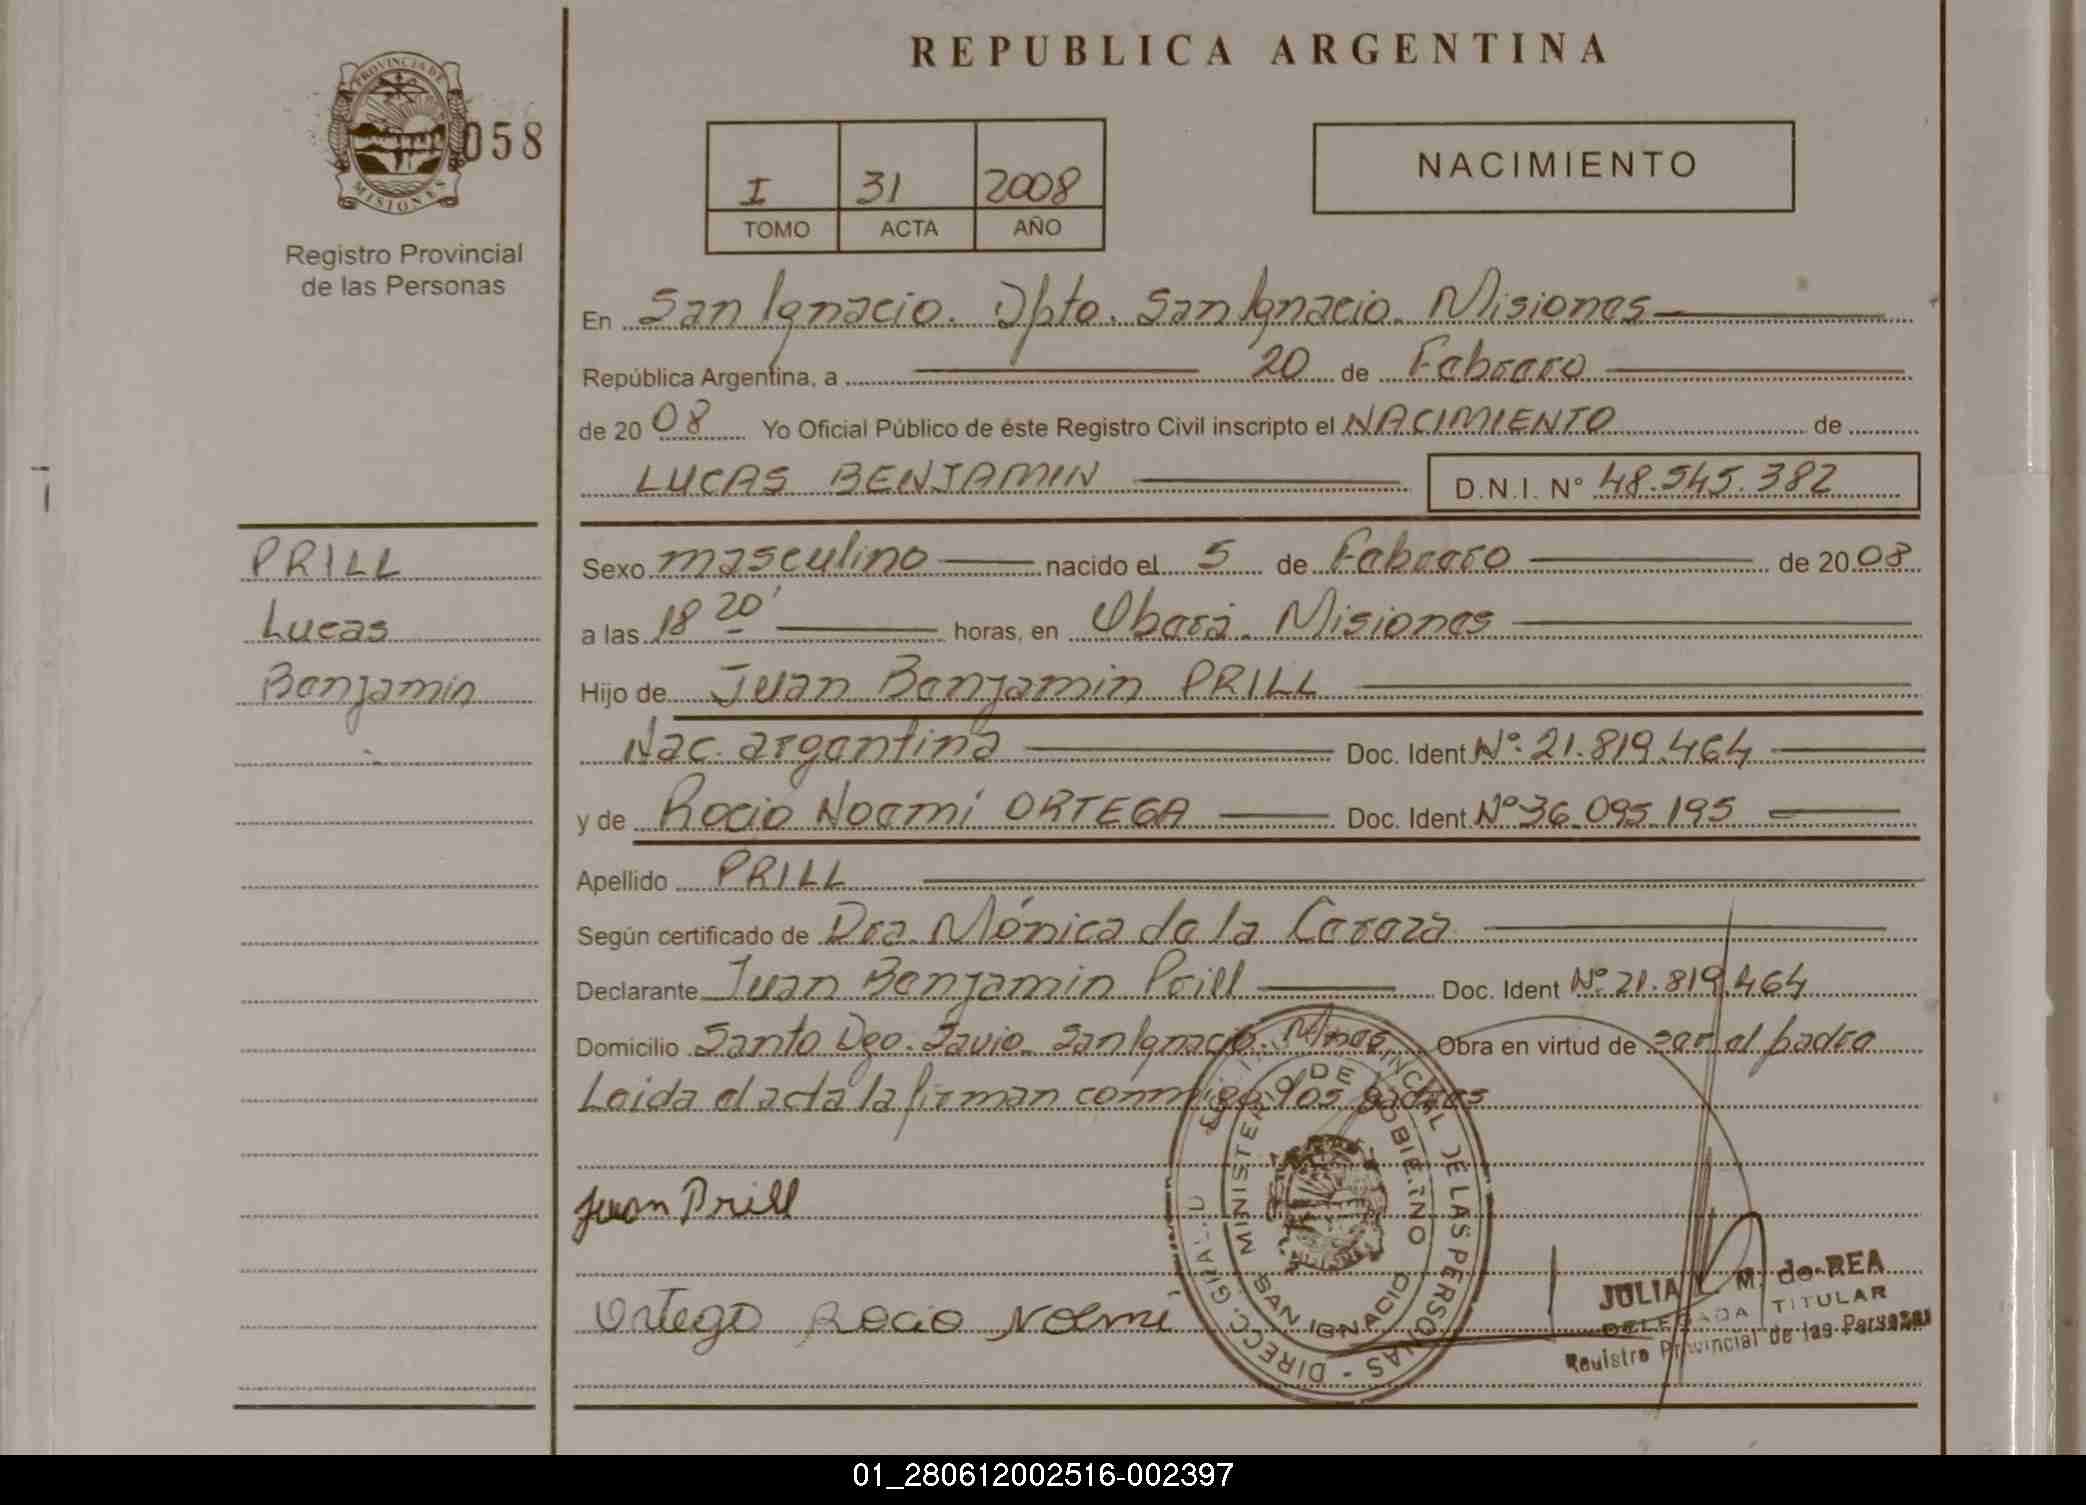 REPUBLICA ARGENTINA
PROVINCIA DE
MISIONES
058
Registro Provincial
de las Personas
I 31 2008
TOMO ACTA AÑO
NACIMIENTO
En San Ignacio. Dpto. San Ignacio. Misiones
República Argentina, a 20 de Febrero
de 2008 Yo Oficial Público de éste Registro Civil inscripto el NACIMIENTO de
LUCAS BENJAMIN D.N.I. N° 48.545.382
PRILL
Lucas
Benjamin
Sexo masculino nacido el 5 de Febrero de 2008
a las 18 20' horas, en Oberá. Misiones
Hijo de Juan Benjamin PRILL
Nac. argentina Doc. Ident Nº. 21.819.464
y de Rocio Noemí ORTEGA Doc. Ident Nº 36.095.195
Apellido PRILL
Según certificado de Dra. Mónica de la
Declarante Juan Benjamin Prill Doc. Ident Nº. 21.819.464
Domicilio Santo Dgo. Savio. San Ignacio. Mnes. Obra en virtud de ser el padre
Leida el acta la firman conmigo los padres
Juan Prill
Ortega Rocio Noemi
MINISTERIO DE GOBIERNO
SAN IGNACIO
DIRECC. GRAL. PROVINCIAL DE LAS PERSONAS
JULIA M. de REA
DELEGADA TITULAR
Registro Provincial de las Personas
01_280612002516-002397